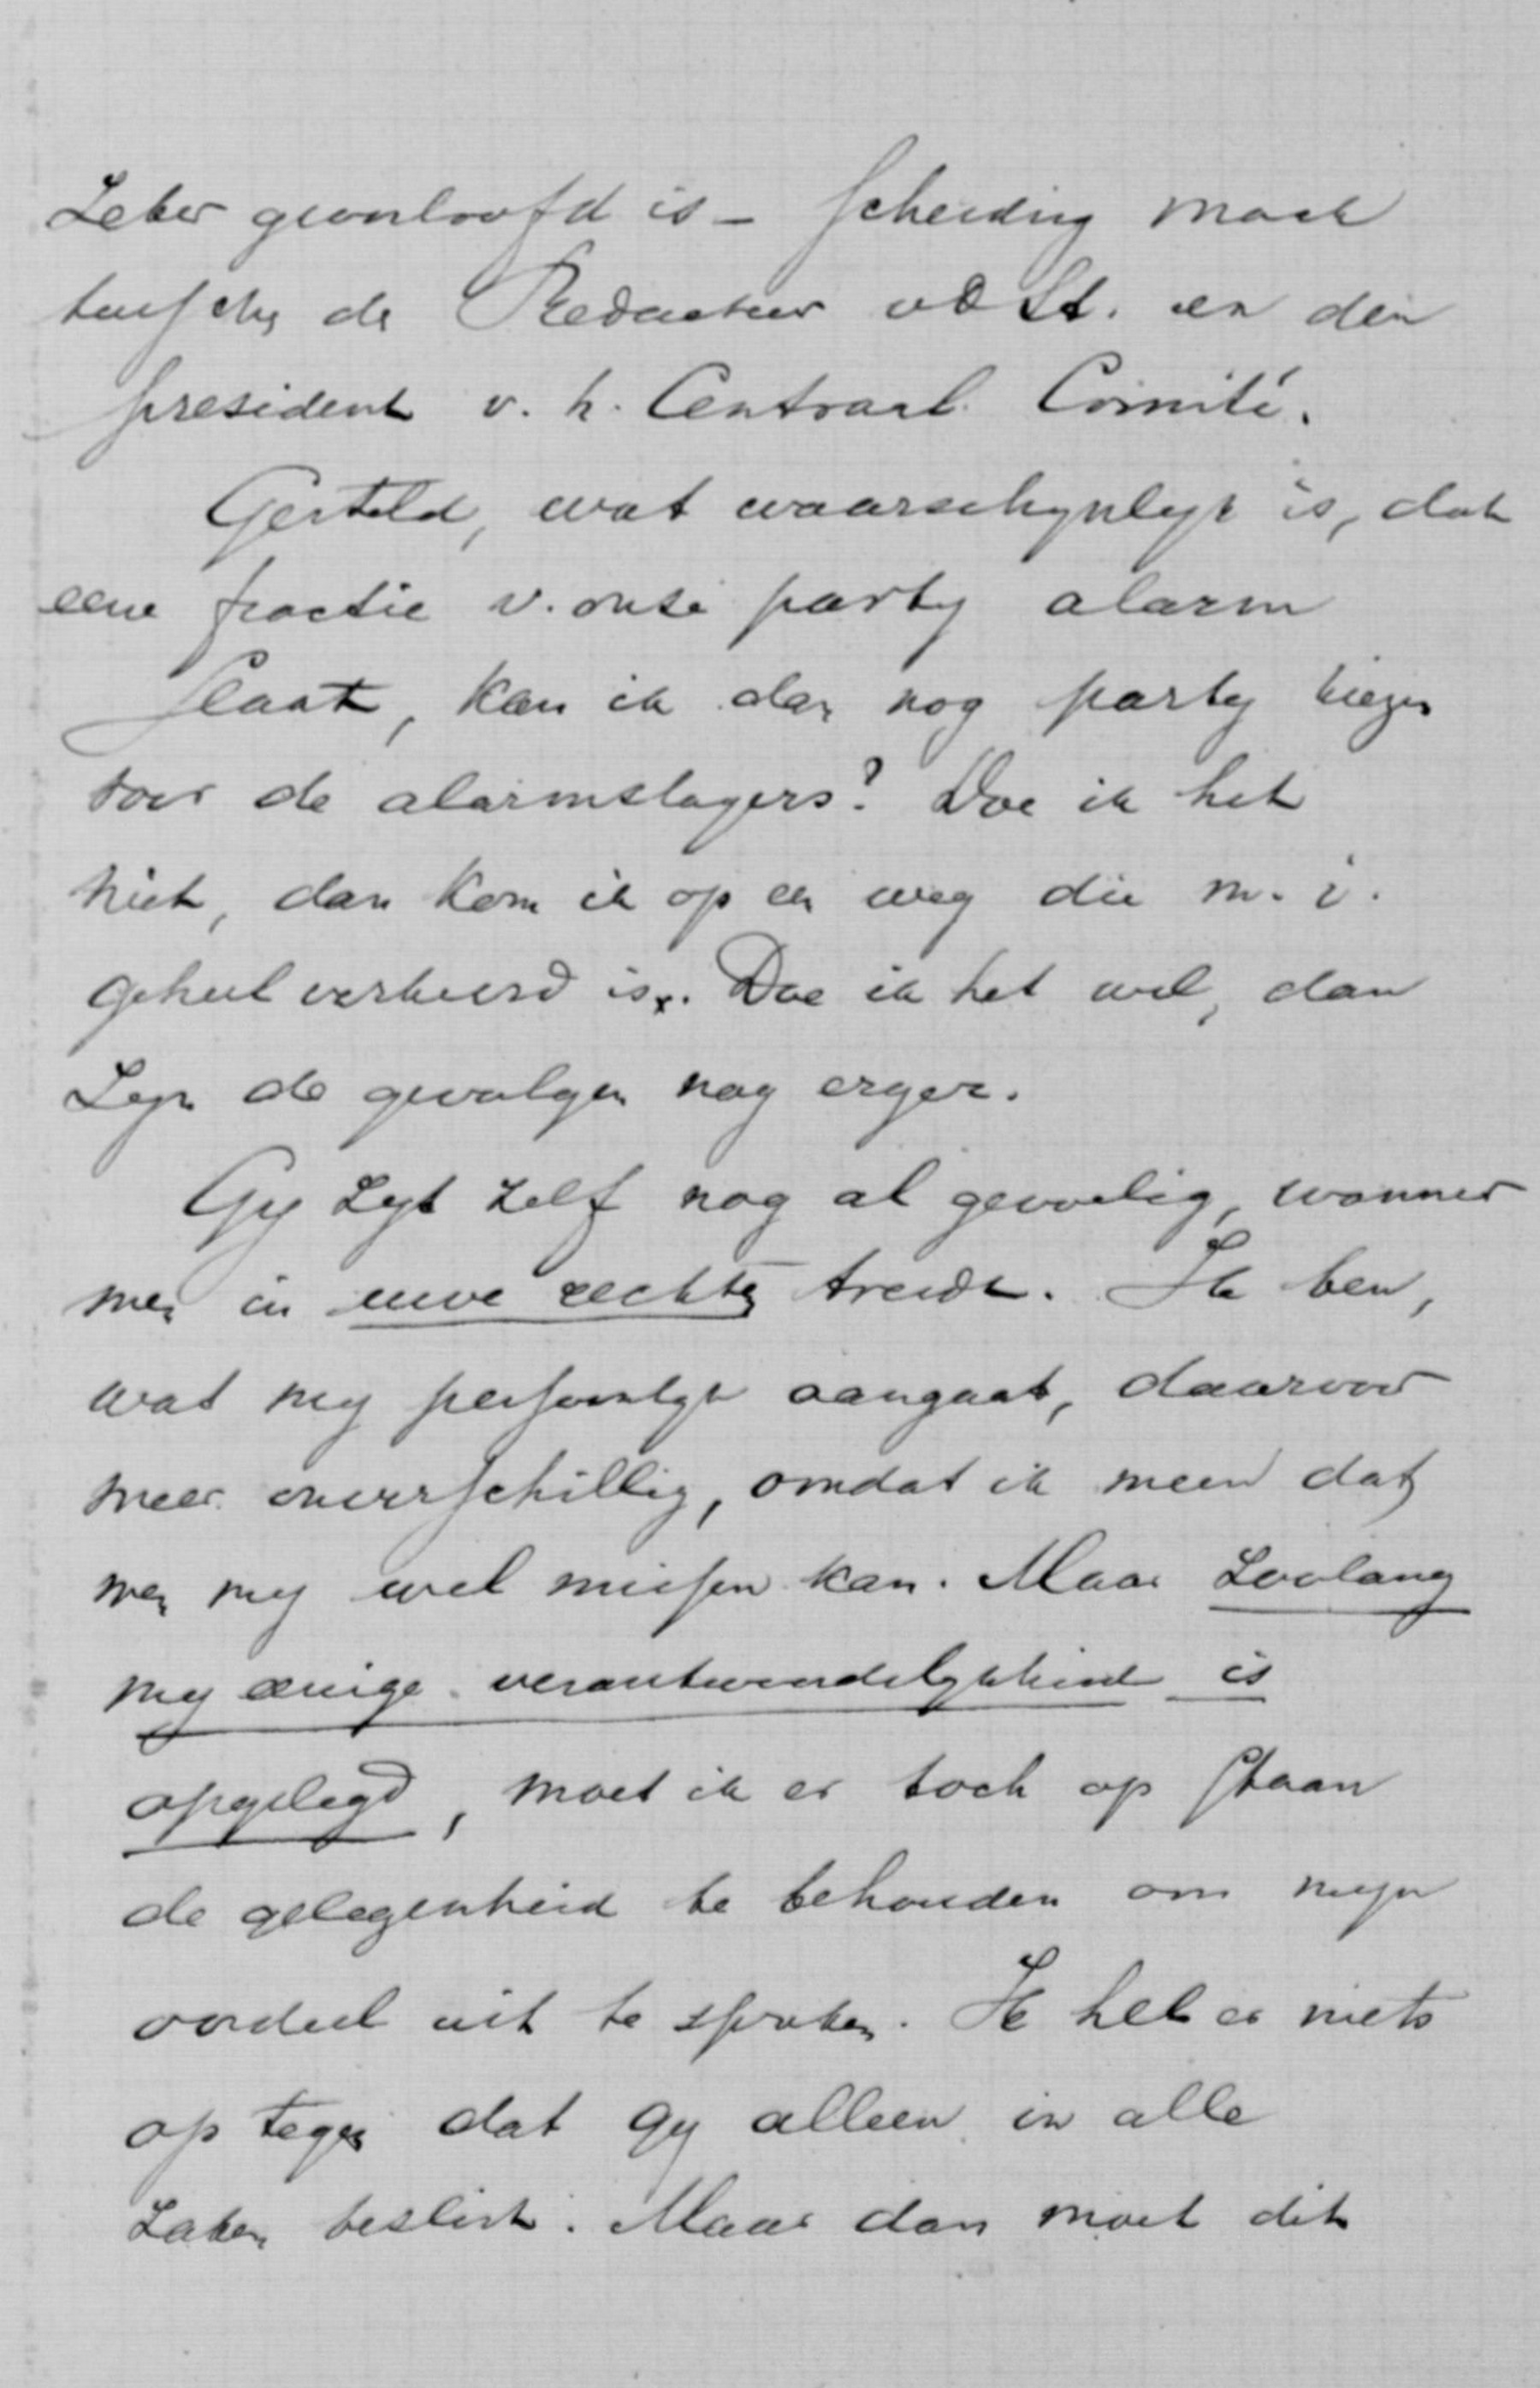 zeker geoorloofd is – scheiding maak
tusschen de Redacteur v D St. en den
president v. h. Centraal Comité.
Gesteld, wat waarschynlyk is, dat
eene fractie v. onze party alarm
slaat, kan ik dan nog party kiezen
voor de alarmslagers? Doe ik het
niet, dan kom ik op een weg die m. i.
geheel verkeerd is. Doe ik het wel, dan
zyn de gevolgen nog erger.
Gy zyt zelf nog al gevoelig, wanneer
men in uwe rechten treedt. Ik ben,
wat my persoonlyk aangaat, daarvoor
meer onverschillig, omdat ik meen dat
men my wel missen kan. Maar zoolang
my eenige verantwoordelykheid is
opgelegd, moet ik er toch op staan
de gelegenheid te behouden om myn
oordeel uit te spreken. Ik heb er niets
op tegen dat gy alleen in alle
zaken beslist. Maar dan moet dit